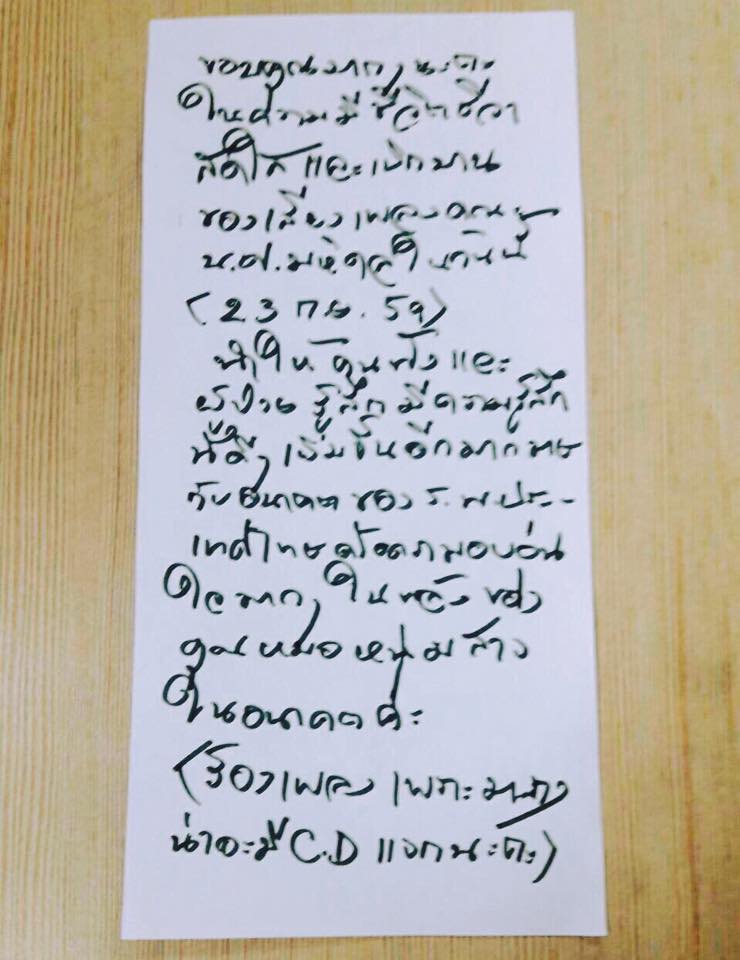 ขอบคุณมากๆ นะคะ
ในความมีชีวิตชีวา
สดใส และเบิกบาน
ของเสียงเพลงคณะ
น.ศ.มหิดลในวันนี้
(23 กย. 59)
ทำให้ คนฟัง และ
ผู้ป่วย รู้สึก มีความรู้สึก
ที่ดีๆ เพิ่มขึ้นอีกมากมาย
กับอนาคต ของ ร.พ.ประ-
เทศไทยด้วยความอบอุ่น
ใจมากๆ ในพลังของ
คุณหมอหนุ่มสาว
ในอนาคตค่ะ
(ร้องเพลง เพราะมากๆ
น่าจะมี C.D แจกนะคะ)